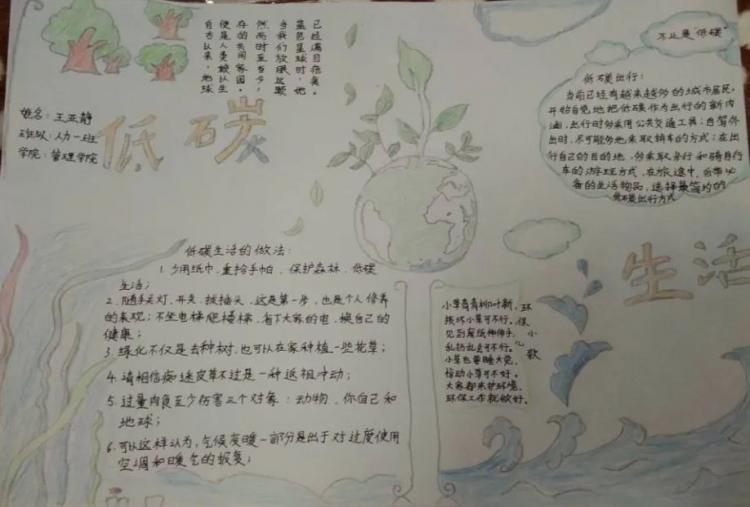 自古以来，地球
便是人类赖以生
存的共同家园。
然而时至当今，
当我们放眼这颗
蓝色星球时，它
已经满目疮痍。
姓名：王亚静
班级：人力一班
学院：管理学院
低碳
不止是"低碳"
低碳出行：
当前已经有越来越多的城市居民，
开始自觉地把低碳作为出行的新内
涵，出行时多采用公共交通工具；自驾外
出时，尽可能多地采取拼车的方式；在出
行自己的目的地，多采取步行和骑自行
车的游玩方式，在旅途中，自带必
备的生活物品，选择最简约的
低碳出行方式
生活
低碳生活的做法：
1.少用纸巾，重拾手帕，保护森林，低碳
生活；
2.随手关灯、开关、拔插头，这是第一步，也是个人修养
的表现；不坐电梯爬楼梯，省下大家的电，换自己的
健康；
3.绿化不仅是去种树，也可以在家种植一些花草；
4.请相信痴迷皮草不过是一种返祖冲动；
5.过量肉食至少伤害三个对象：动物、你自己和
地球；
6.可以这样认为，气候变暖一部分是出于对过度使用
空调和暖气的报复；
环保小歌
小草青青柳叶新，
损坏小草可不行。
见到废纸伸伸手，
乱扔乱丢可不行。
小草也要睡大觉，
惊动小草可不好。
大家都来护环境，
环保工作就做好。